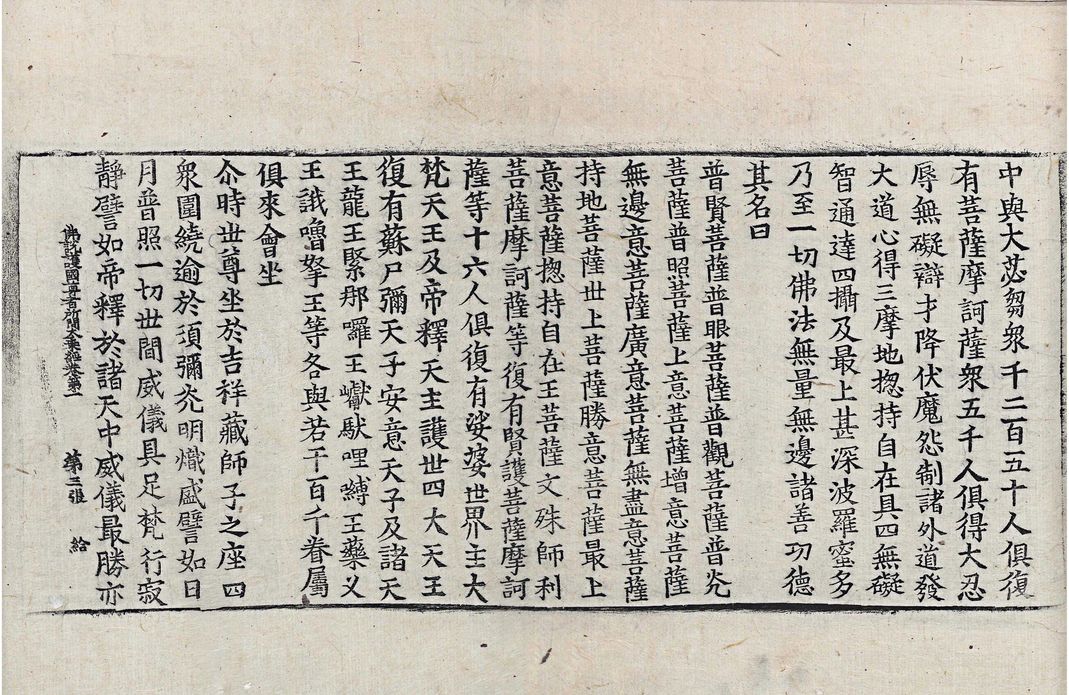 中與大苾芻衆千二百五十人俱復
有菩薩摩訶薩衆五千人俱得大忍
辱無礙辯才降伏魔怨制諸外道發
大道心得三摩地揔持自在具四無礙
智通達四攝及最上甚深波羅蜜多
乃至一切佛法無量無邊諸善功德
其名曰
普賢菩薩普眼菩薩普觀菩薩普光
菩薩普照菩薩上意菩薩增意菩薩
無邊意菩薩廣意菩薩無盡意菩薩
持地菩薩世上菩薩勝意菩薩最上
意菩薩揔持自在王菩薩文殊師利
菩薩摩訶薩等復有賢護菩薩摩訶
薩等十六人俱復有娑婆世界主大
梵天王及帝釋天主護世四大天王
復有蘇尸彌天子安意天子及諸天
王龍王緊那囉王巘馱哩嚩王藥叉
王誐嚕拏王等各與若干百千眷屬
俱來會坐
尒時世尊坐於吉祥藏師子之座四
衆圍繞逾於須彌光明熾盛譬如日
月普照一切世間威儀具足梵行寂
佛說護國尊者所問大乘經卷第一 第三張 給
靜譬如帝釋於諸天中威儀最勝亦